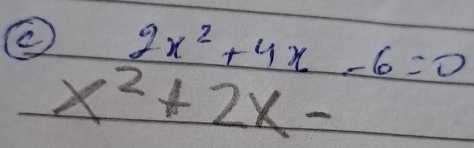 (c) 2x² + 4x - 6 = 0
x² + 2x -